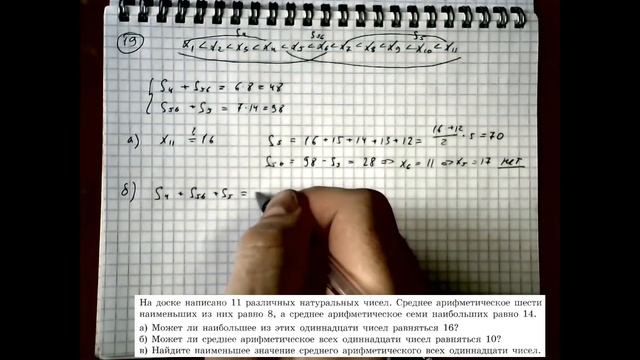 19
S₄ S₅₆ S₅
x₁ < x₂ < x₃ < x₄ < x₅ < x₆ < x₇ < x₈ < x₉ < x₁₀ < x₁₁
S₄ + S₅₆ = 6·8 = 48
S₅₆ + S₅ = 7·14 = 98
а) x₁₁ ?= 16 S₅ = 16+15+14+13+12 = (16+12)/2 · 5 = 70
S₅₆ = 98 - S₅ = 28 => x₆ = 11 => x₅ = 17 нет
б) S₄ + S₅₆ + S₅ =
На доске написано 11 различных натуральных чисел. Среднее арифметическое шести
наименьших из них равно 8, а среднее арифметическое семи наибольших равно 14.
а) Может ли наибольшее из этих одиннадцати чисел равняться 16?
б) Может ли среднее арифметическое всех одиннадцати чисел равняться 10?
в) Найдите наименьшее значение среднего арифметического всех одиннадцати чисел.